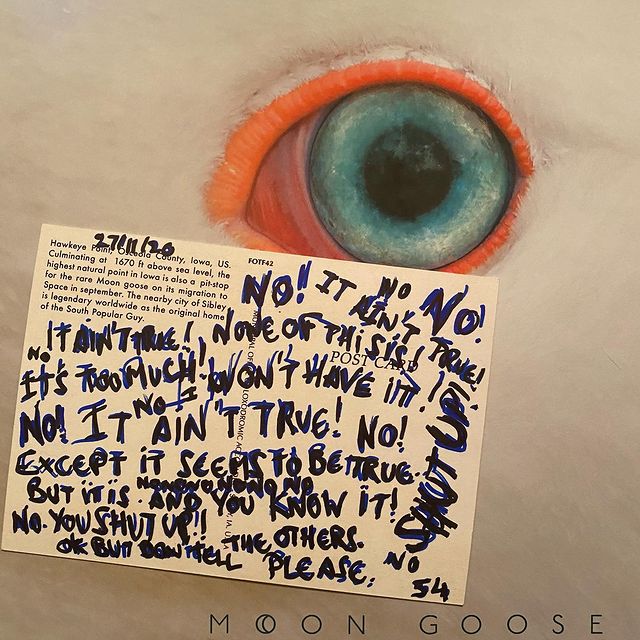 27/11/20
Hawkeye Point, Osceola County, Iowa, US.
Culminating at 1670 ft above sea level, the
highest natural point in Iowa is also a pit-stop
for the rare Moon goose on its migration to
Space in september. The nearby city of Sibley
is legendary worldwide as the original home
of the South Popular Guy.
FOTF42
POST CARD
NO! IT AIN'T TRUE!
NO NO!
IT AIN'T TRUE! NONE OF THIS IS!
NO
IT'S TOO MUCH! I WON'T HAVE IT!
NO
NO! IT AIN'T TRUE! NO!
EXCEPT IT SEEMS TO BE TRUE.
NO NO NO NO NO NO
BUT IT IS AND YOU KNOW IT!
NO. YOU SHUT UP!!
OK BUT DON'T TELL THE OTHERS.
PLEASE.
NO
SHUT UP!
54
MOON GOOSE